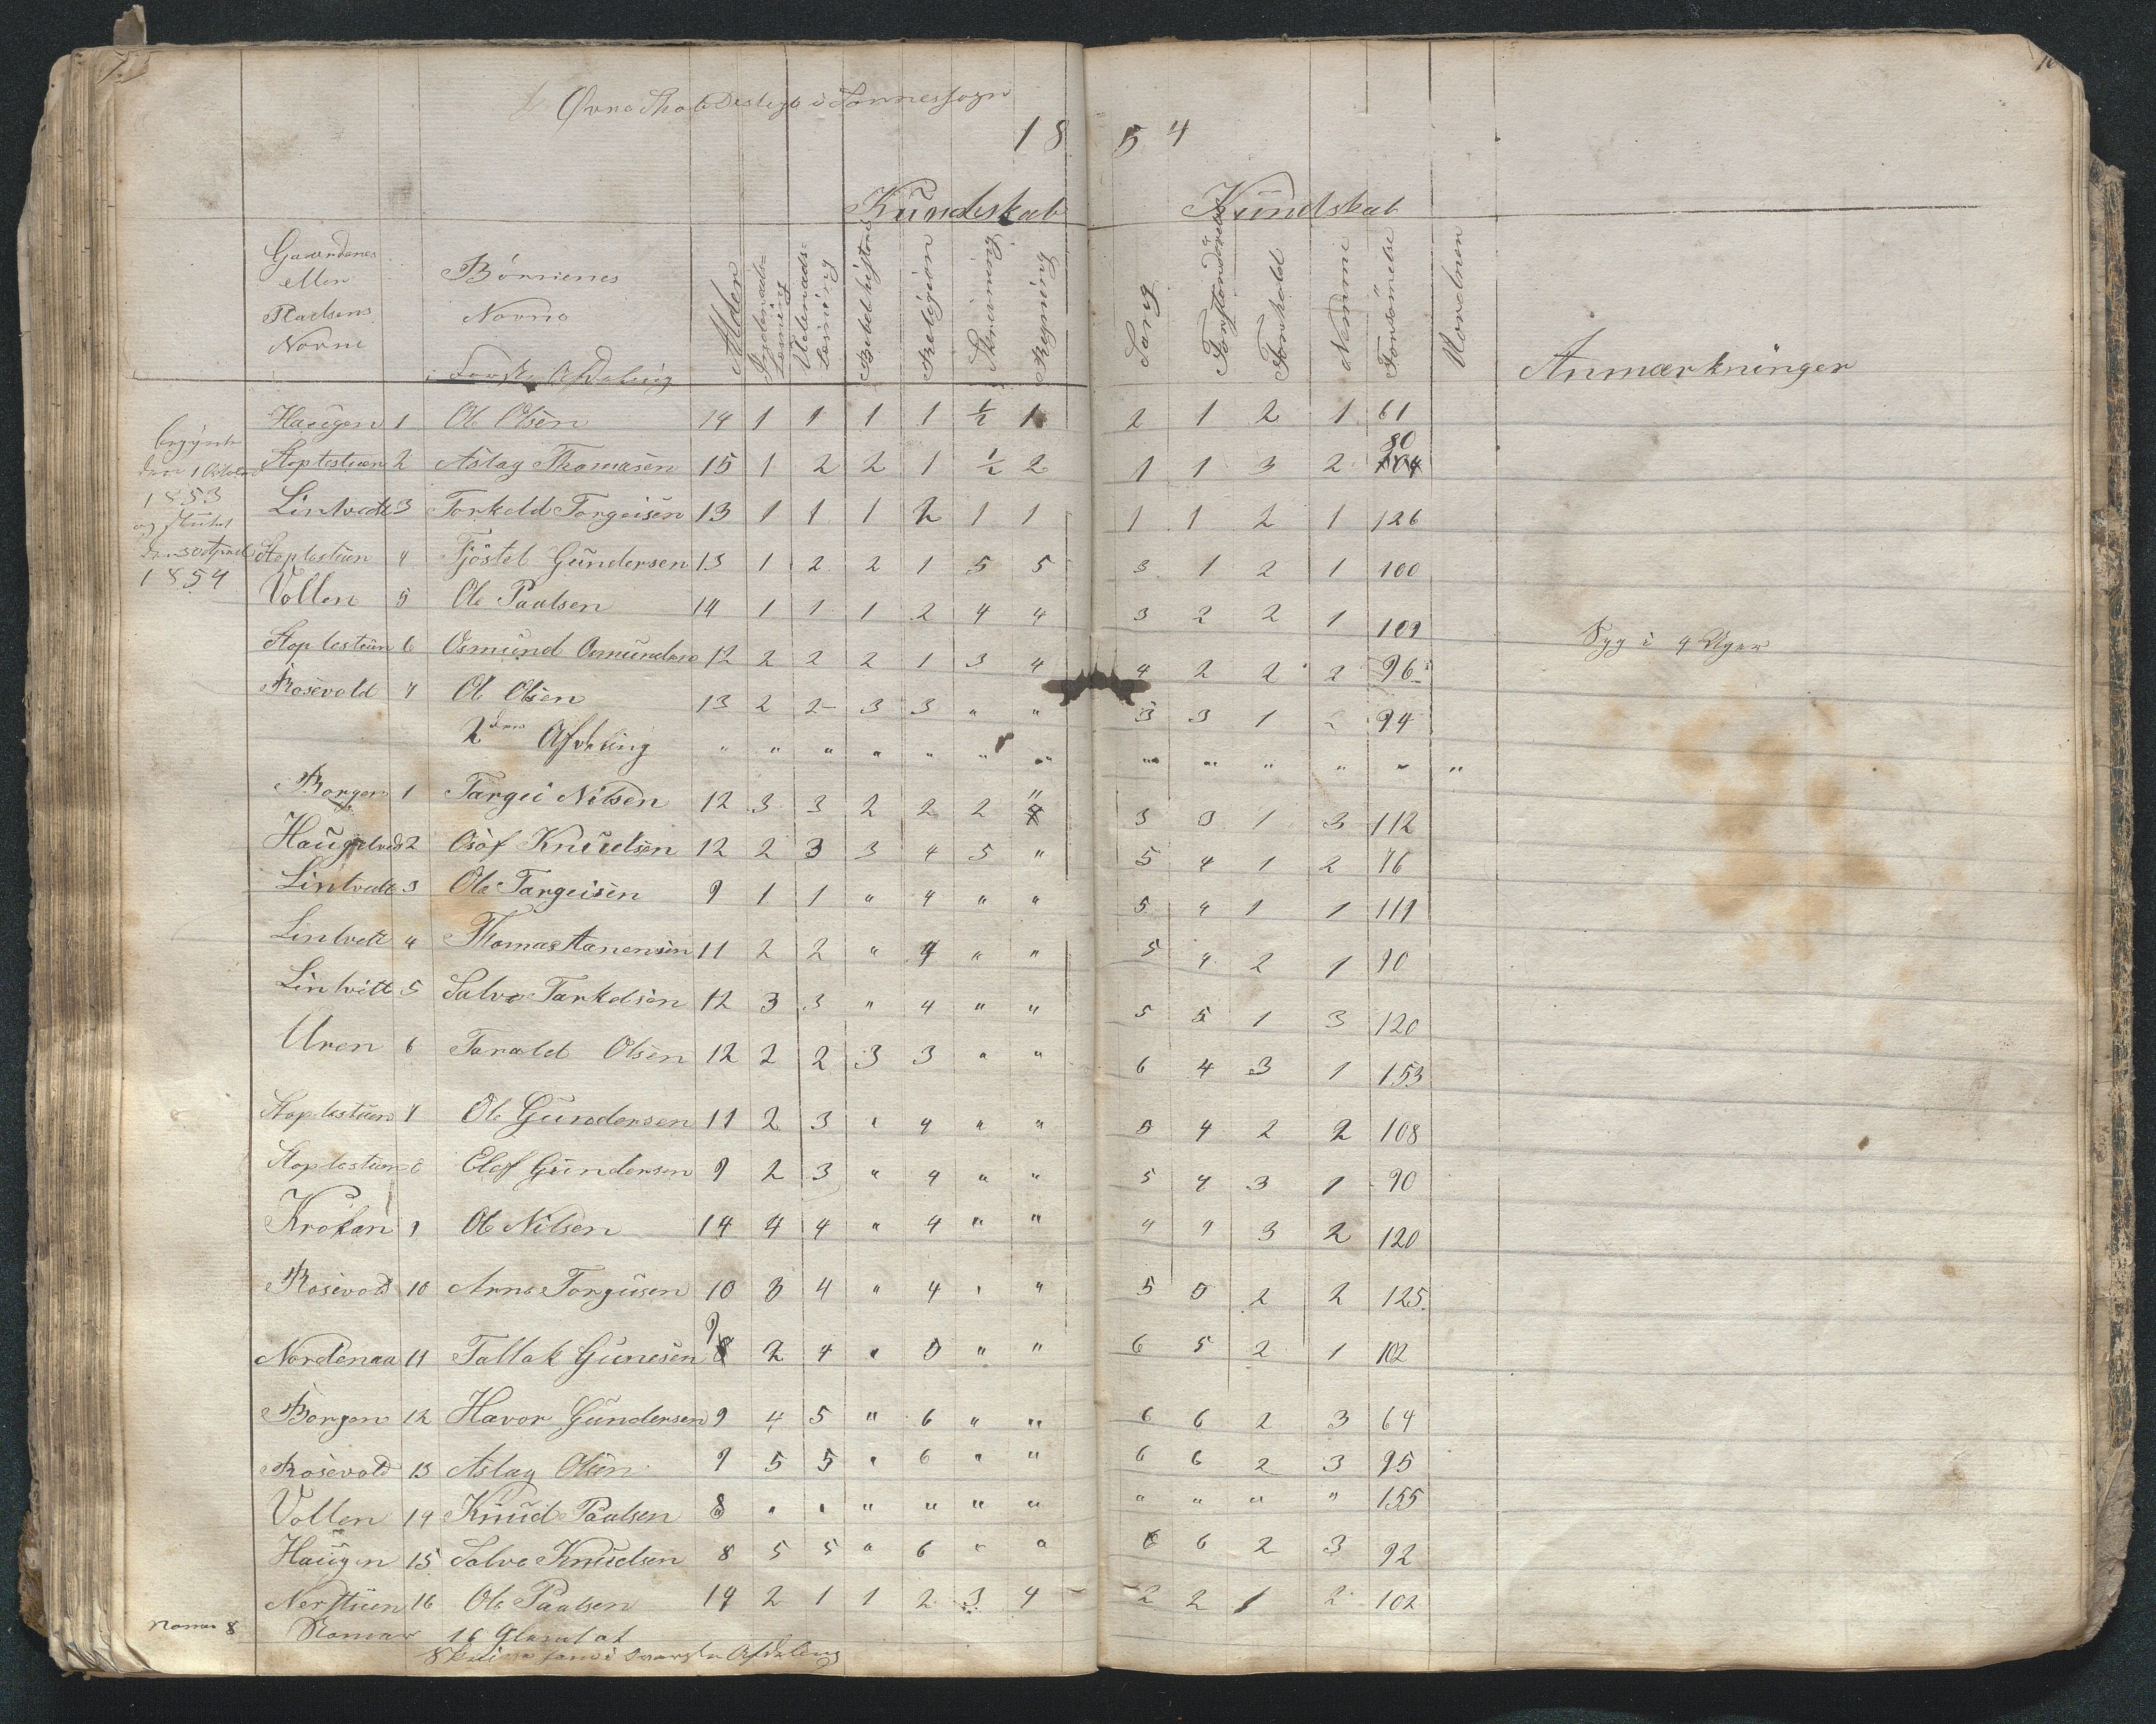 i Sonnes sogn
18 54
Kundskab Kundskab
Gaardenes eller Pladsens Navne Børnenes Navne Alder Indenads Læsning Udenads Læsning Bibelhistorie Religion Skrivning Regning Sang Forstand Forhold Nemme Forsømelse Anmærkninger
Første Afdeling
begynt den 1 October 1853 og slutet den April 1854
Haugen 1 Ole Olsen 14 1 1 1 1 ½ 1 2 1 2 1 61
Stoplestuen 2 Aslag Thomasen 15 1 2 2 1 ½ 2 1 1 3 2 80
Lintvedt 3 Torkeld Torgeisen 13 1 1 1 2 1 1 1 1 2 1 126
Stoplestuen 4 Tjöstel Gundersen 13 1 2 2 1 5 5 3 1 2 1 100
Vollen 5 Ole Paulsen 14 1 1 1 2 4 4 3 2 2 1 109
Stoplestuen 6 Osmund Osmundsen 12 2 2 2 1 3 4 4 2 2 2 96 Syg i 4 Uger
Rosevold 7 Ole Olsen 13 2 2 3 3 " " 3 3 1 2 94
2den Afdeling " " " " " " " " " " " " "
Borgen 1 Targei Nilsen 12 3 3 2 2 2 " 3 3 1 3 112
Haugelvedt 2 Osof Knudsen 12 2 3 3 4 5 " 5 4 1 2 76
Lintvedt 3 Ole Targeisen 9 1 1 " 4 " " 5 4 1 1 119
Lintvett 4 Thomas Aanensen 11 2 2 " 4 " " 5 4 2 1 90
Lintvitt 5 Salve Tarkelsen 12 3 3 " 4 " " 5 5 1 3 120
Uren 6 Tarald Olsen 12 2 2 3 3 " " 6 4 3 1 153
Stoplestuen 7 Ole Gundersen 11 2 3 " 4 " " 5 4 2 2 108
Stoplestuen 8 Elef Gundersen 9 2 3 " 4 " " 5 4 3 1 90
Krokan 9 Ole Nilsen 14 4 4 " 4 " " 4 4 3 2 120
Rosevold 10 Arne Torgusen 10 3 4 " 4 " " 5 5 2 2 125
Nordenaa 11 Tallak Gunesen 9 2 4 " 5 " " 6 5 2 1 102
Borgen 12 Havor Gundersen 9 4 5 " 6 " " 6 6 2 3 64
Rosevold 13 Aslag Olsen 9 5 5 " 6 " " 6 6 2 3 95
Vollen 14 Knud Paulsen 8 " " " " " " " " " " 155
Haugen 15 Salve Knudsen 8 5 5 " 6 " " 6 6 2 3 92
Nerstuen 16 Ole Paulsen 14 2 1 1 2 3 4 2 2 1 2 102
Nomer 8 Nomer 16
i Første Afdeling